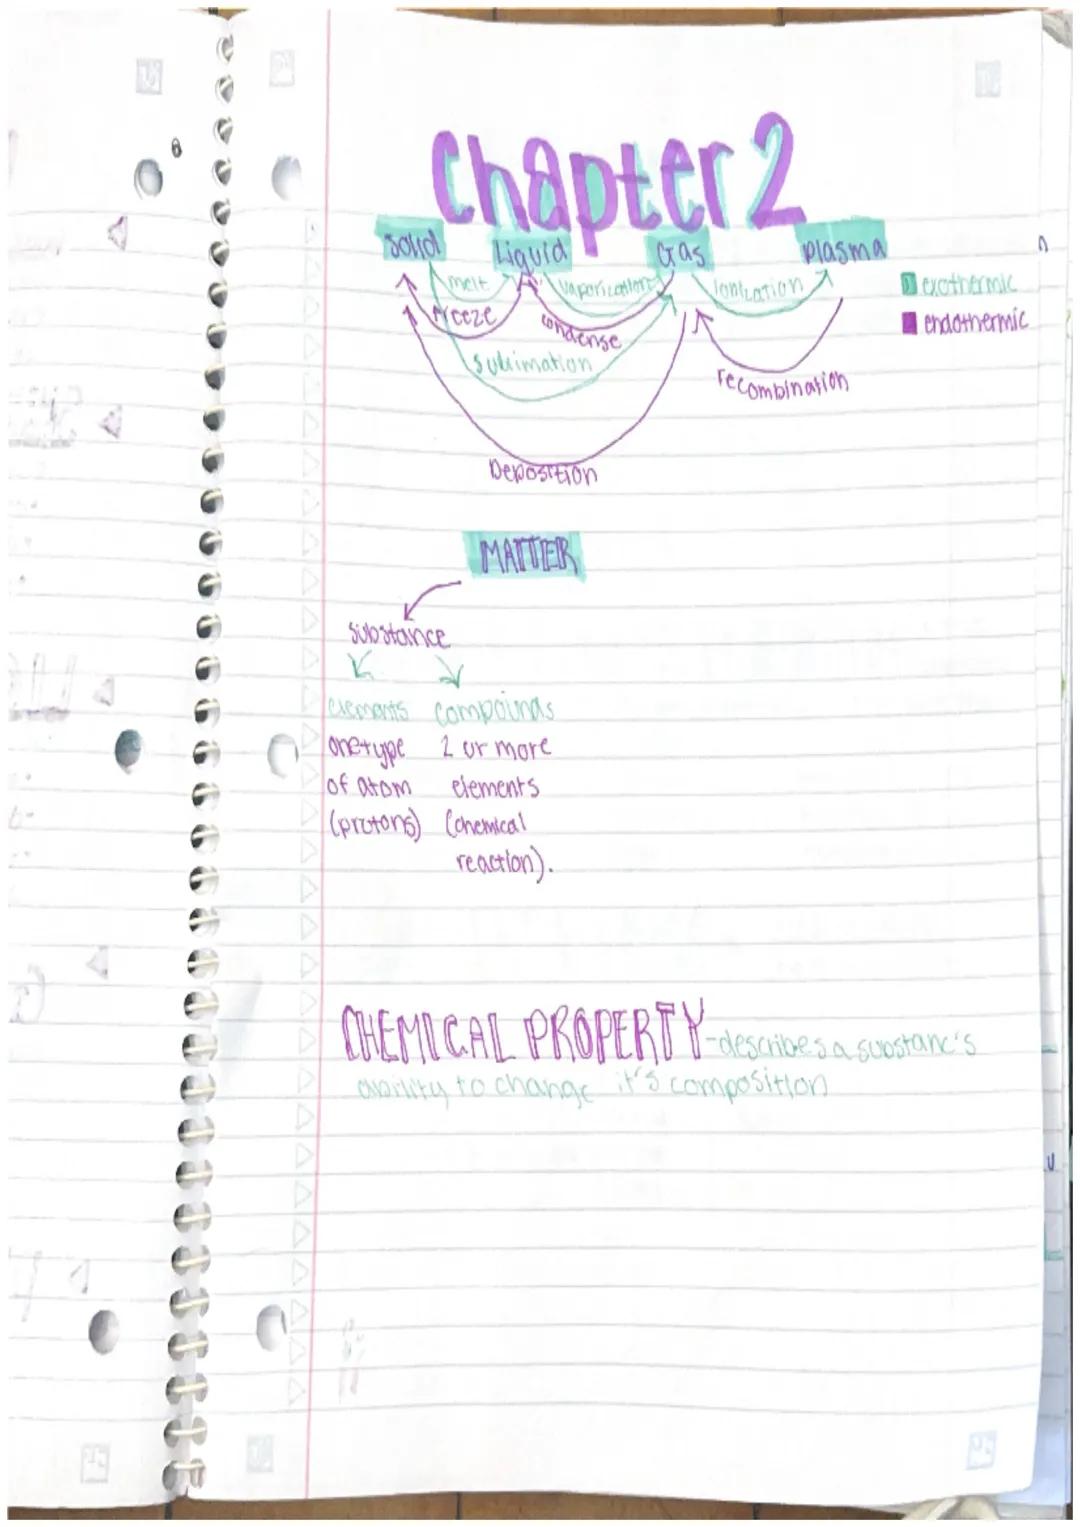 Chapter 2
Solid Liquid Gas Plasma
melt vaporization Ionization exothermic
freeze condense endothermic
sublimation recombination
Deposition
MATTER
substance
elements compounds
one type 2 or more
of atom elements
(protons) (chemical
reaction).
CHEMICAL PROPERTY-describes a substanc's
ability to change it's composition